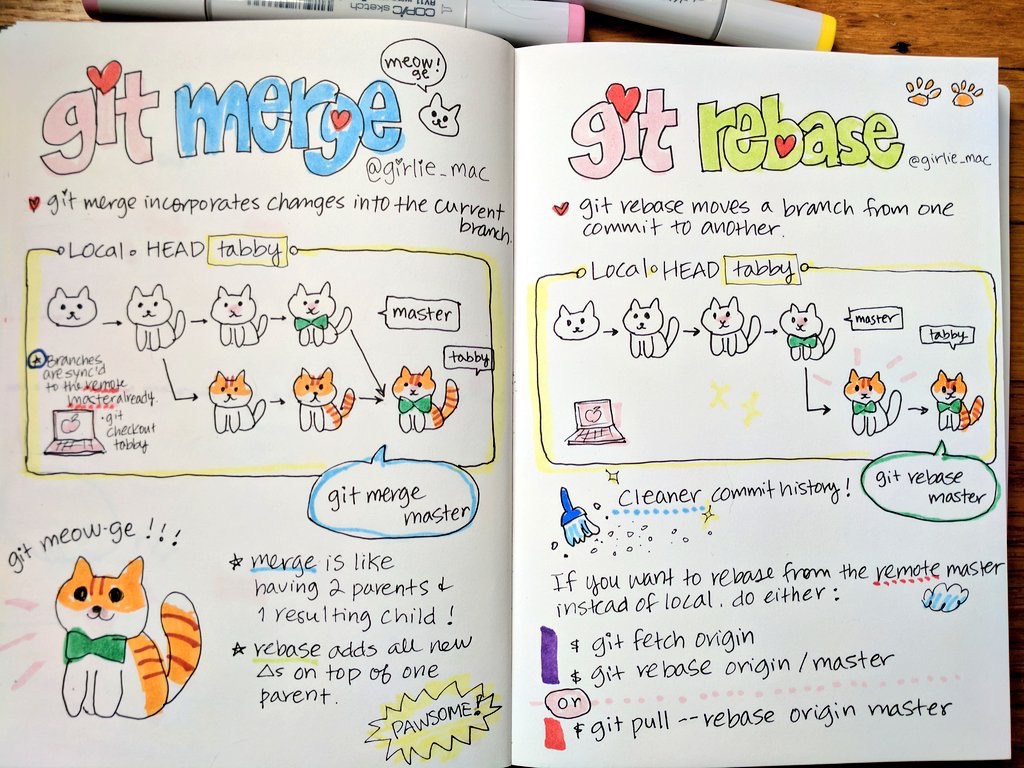 COPIC sketch
meow!
ge!
git merge
@girlie_mac
git merge incorporates changes into the current
branch.
Local HEAD tabby
master
tabby
Branches
are sync'd
to the remote
master already.
git
checkout
tabby
git merge
master
git meow-ge !!!
merge is like
having 2 parents &
1 resulting child!
rebase adds all new
Δs on top of one
parent.
PAWSOME!
git rebase
@girlie_mac
git rebase moves a branch from one
commit to another.
Local HEAD tabby
master
tabby
git rebase
master
Cleaner commit history!
If you want to rebase from the remote master
instead of local, do either:
$ git fetch origin
$ git rebase origin/master
or
$ git pull --rebase origin master